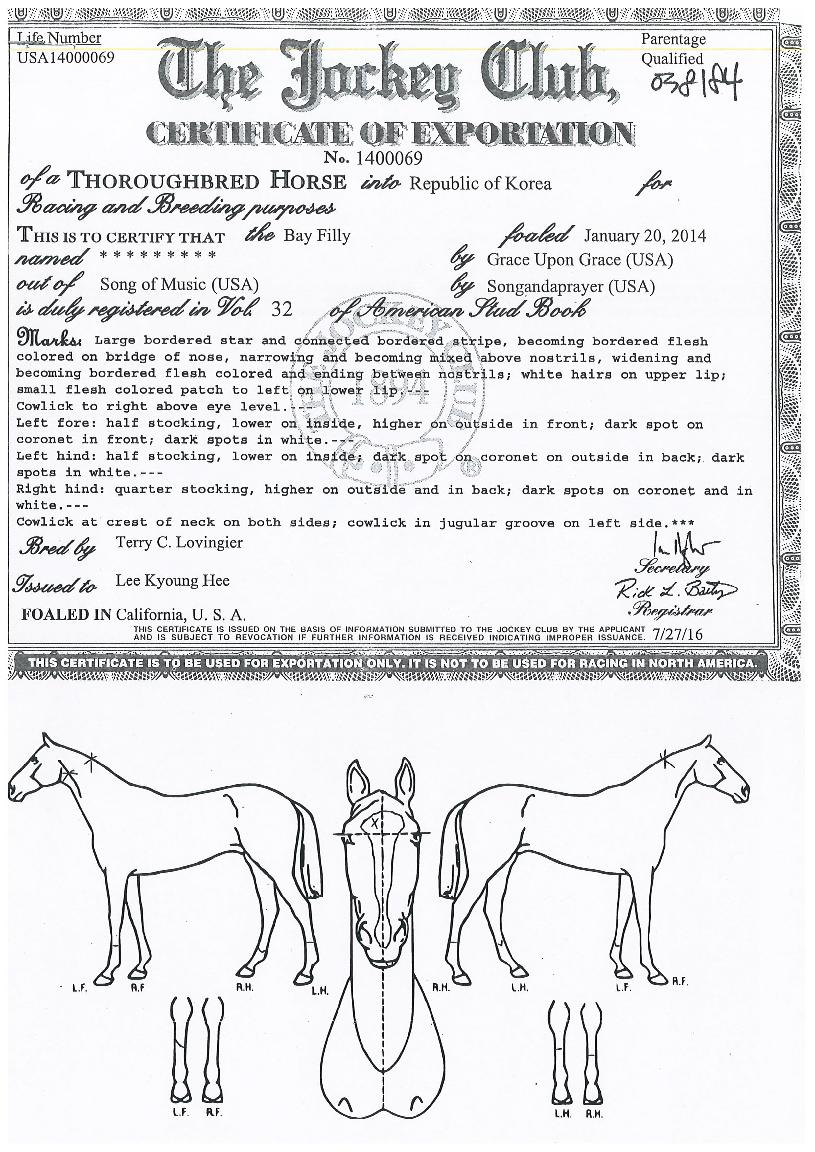 Life Number
USA14000069
Parentage
Qualified
038184
The Jockey Club,
CERTIFICATE OF EXPORTATION
No. 1400069
of a THOROUGHBRED HORSE into Republic of Korea for
Racing and Breeding purposes
THIS IS TO CERTIFY THAT the Bay Filly foaled January 20, 2014
named * * * * * * * * * by Grace Upon Grace (USA)
out of Song of Music (USA) by Songandaprayer (USA)
is duly registered in Vol. 32 of American Stud Book
Marks: Large bordered star and connected bordered stripe, becoming bordered flesh
colored on bridge of nose, narrowing and becoming mixed above nostrils, widening and
becoming bordered flesh colored and ending between nostrils; white hairs on upper lip;
small flesh colored patch to left on lower lip.---
Cowlick to right above eye level.---
Left fore: half stocking, lower on inside, higher on outside in front; dark spot on
coronet in front; dark spots in white.---
Left hind: half stocking, lower on inside; dark spot on coronet on outside in back; dark
spots in white.---
Right hind: quarter stocking, higher on outside and in back; dark spots on coronet and in
white.---
Cowlick at crest of neck on both sides; cowlick in jugular groove on left side.***
THE JOCKEY CLUB
1894
®
Bred by Terry C. Lovingier
Secretary
Issued to Lee Kyoung Hee
Rick L. Bailey
Registrar
FOALED IN California, U. S. A.
THIS CERTIFICATE IS ISSUED ON THE BASIS OF INFORMATION SUBMITTED TO THE JOCKEY CLUB BY THE APPLICANT
AND IS SUBJECT TO REVOCATION IF FURTHER INFORMATION IS RECEIVED INDICATING IMPROPER ISSUANCE. 7/27/16
THIS CERTIFICATE IS TO BE USED FOR EXPORTATION ONLY. IT IS NOT TO BE USED FOR RACING IN NORTH AMERICA.
L.F. R.F R.H. L.H. R.H. L.H. L.F. R.F.
L.F. R.F. L.H. R.H.